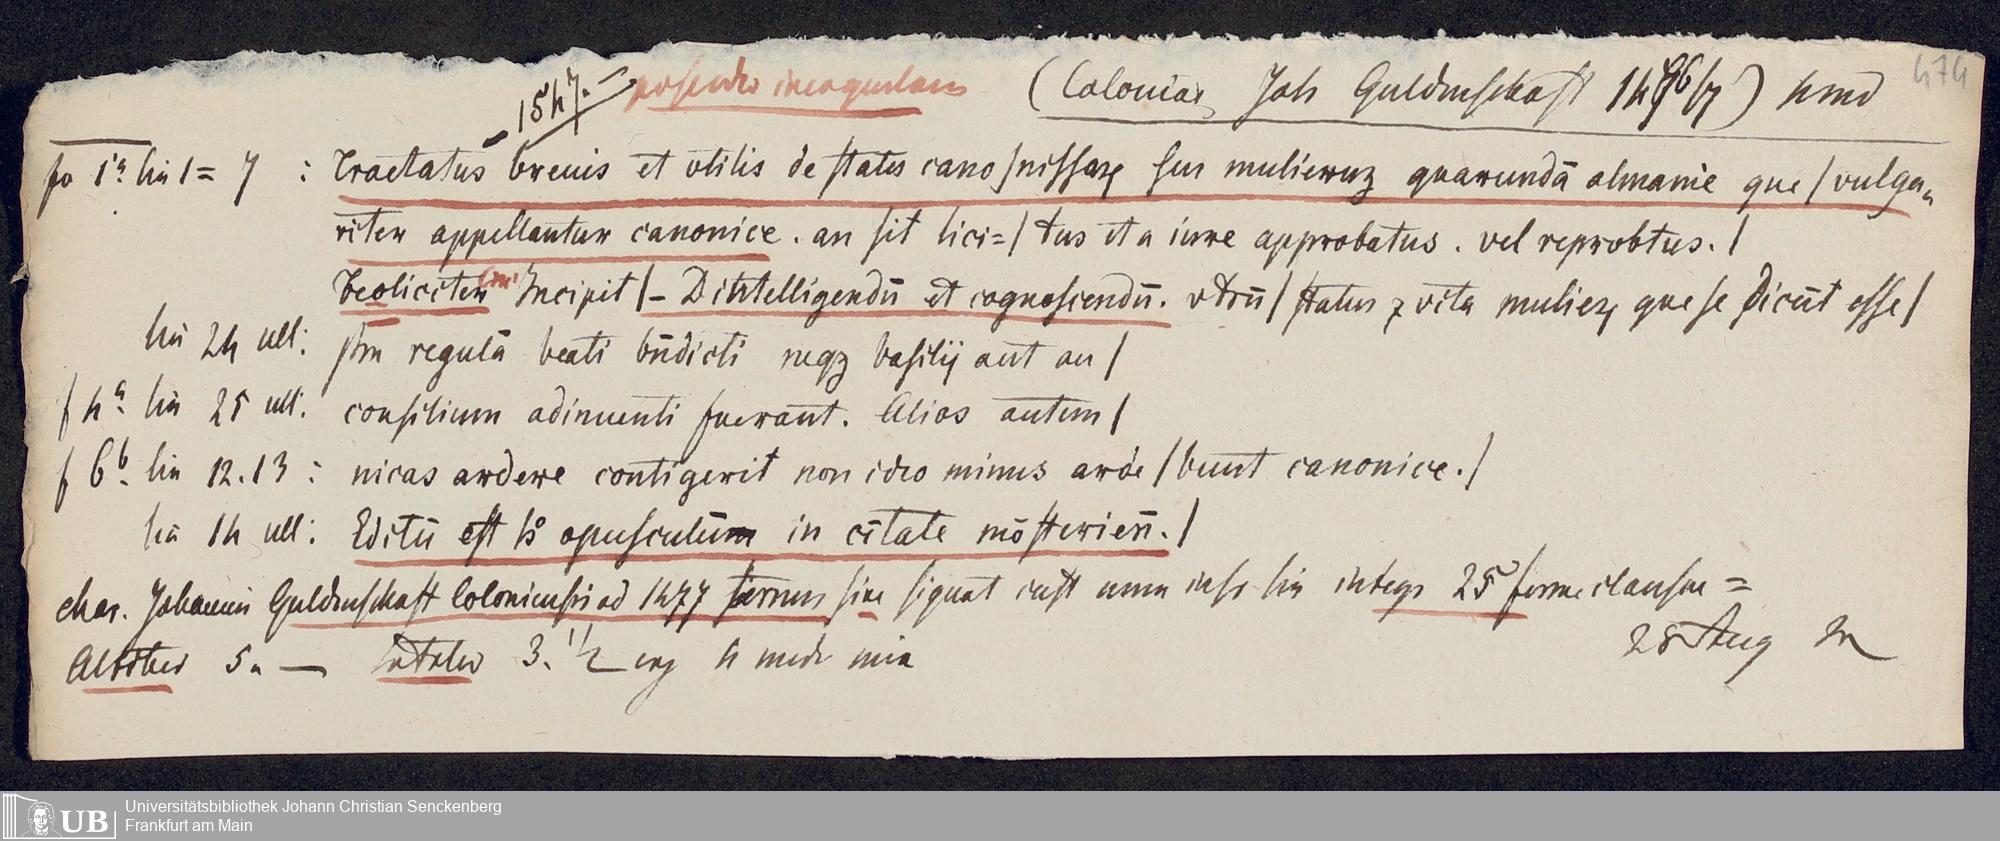 1547. (Coloniae Joh Guldenschaff 1486/7) 474
fo 1ª lin 1=7 : Tractatus breuis et vtilis de statu cano/nissarꝫ seu mulierum quarundā almanie que / vulga-
riter appellantur canonice . an sit lici=/tus et a iure approbatus . vel reprobtus./
Feoliciter Incipit /- Dintelligendū et cognoscendū. vtrū / status ⁊ vita mulierꝫ que se dicūt esse /
lin 24 ult: regulā beati bn̄dicti neqꝫ basilij aut au /
f 4ª lin 25 ult. consilium adinuenti fuerant. Alias autem /
f 6ᵇ lin 12.13 : nicas ardere contigerit non ideo minus arde / bunt canonice./
lin 14 ult: Editū est opusculum in cītate mōsterien̄./
char. Johannis Guldenschaff Coloniensis ad 1477 sine signat cust num lin integr 25
5. — 3. 1/2
28 Aug
UB Universitätsbibliothek Johann Christian Senckenberg
Frankfurt am Main